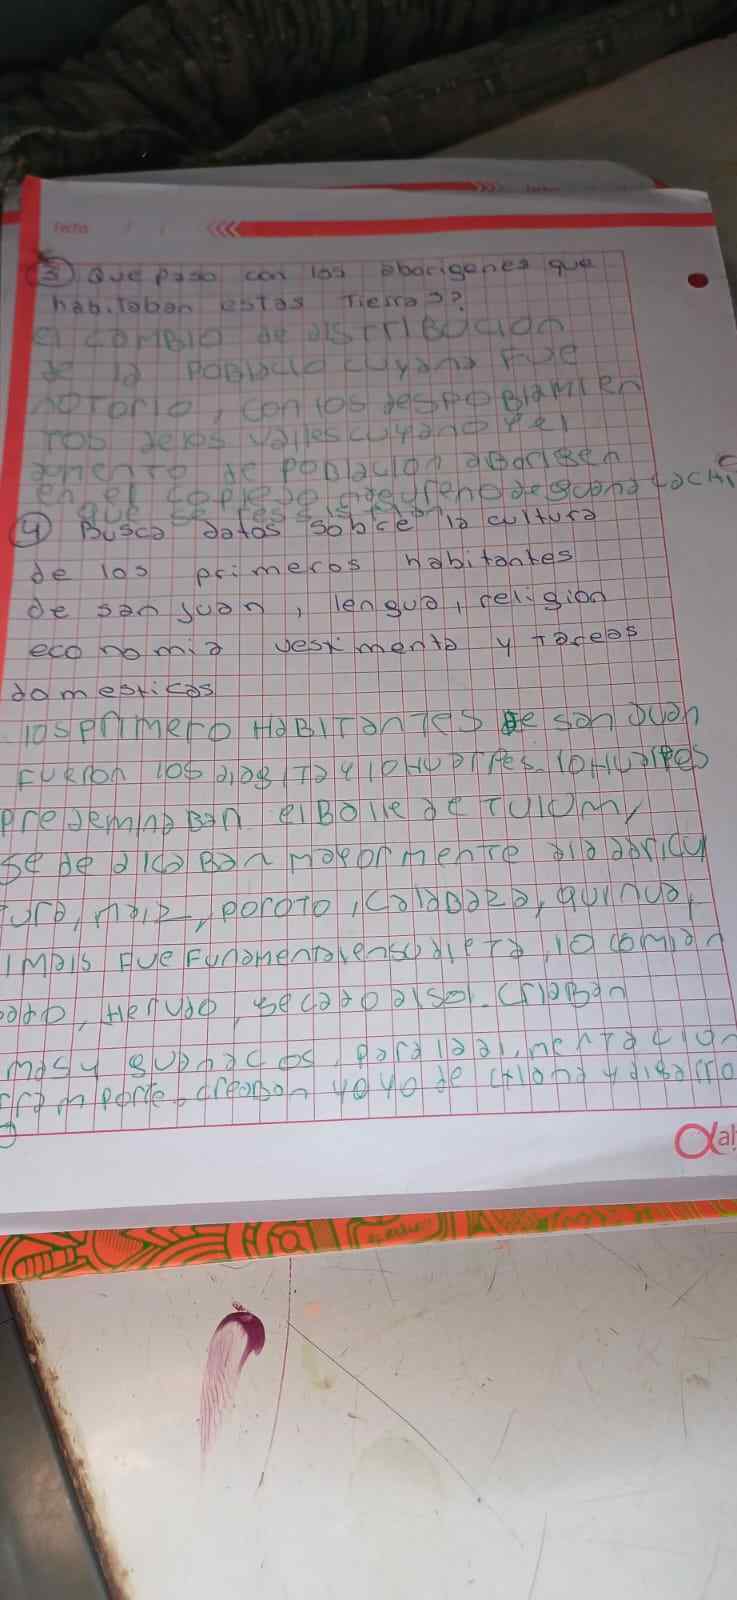 Fecha / /
③ Que paso con los aborigenes que
habitaban estas Tierras??
el cambio de DISTRIBUCION
de la POBlacio cuyana FUE
NOTORIO, con los despoBlamien
tos de los valles cuyano y el
aumento de poBlacion aBorigen
en el
que se
④ Busca datos sobre la cultura
de los primeros habitantes
de san juan, lengua, religion
economia vestimenta y tareas
domesticas
los primero HaBITanTES de san Juan
Fueron los y lo Huarpes. lo Huarpes
predeminaBan el Balle de TUlum,
se de dicaBan maeormente ala agricu
tura, maiz, poroto, calaBaza, quinua,
l mais Fue Fundamental ensu dieta, lo comian
, Hervido, secado al sol. criaBan
mas y guanacos, para la alimentacion
porte. crearon
α al